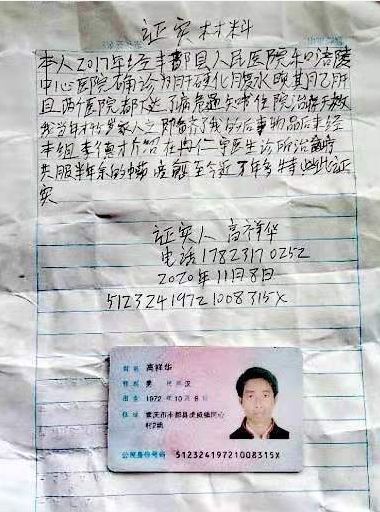 证实材料
本人2017年经丰都县人民医院和涪陵
中心医院确诊为肝硬化腹水晚期乙肝
且两个医院都下达了病危通知书住院治疗无效
我当年才45岁家人已对备齐了我的后事物品后来经
本组李德才介绍在冉仁宗医生诊所治前时
共服半年余的中药痊愈至今近了年多特此证
实
证实人 高祥华
电话 17823170252
2020年11月8日
51232419721008315X
姓名 高祥华
性别 男 民族 汉
出生 1972年10月8日
住址 重庆市丰都县虎威镇同心
村2组
公民身份号码 51232419721008315X